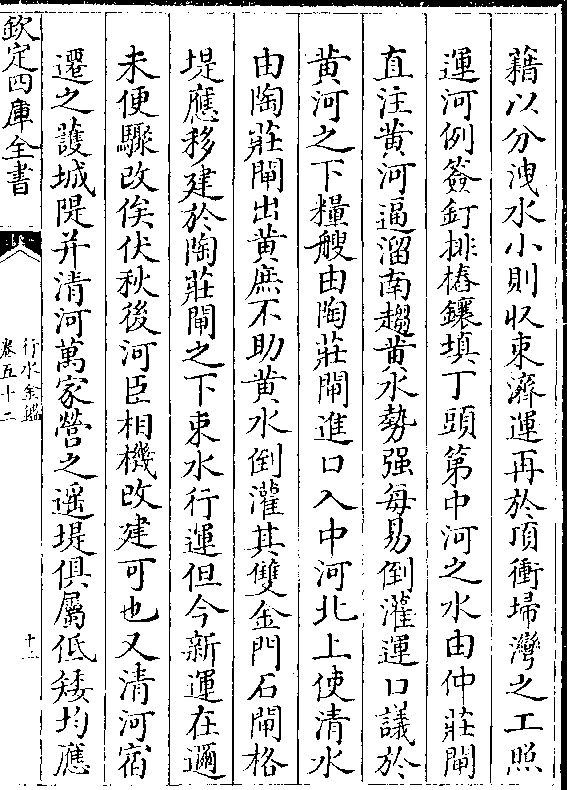 藉以分洩水小則収束濟運再於頂衝埽灣之工照
運河例簽釘排樁鑲填丁頭第中河之水由仲莊閘
直注黄河逼溜南趨黄水勢强每易倒灌運口議於
黄河之下糧艘由陶莊閘進口入中河北上使清水
由陶莊閘出黄庶不助黄水倒灌其雙金門石閘格
堤應移建於陶莊閘之下束水行運但今新運在邇
未便驟改俟伏秋後河臣相機改建可也又清河宿
遷之䕶城隄并清河萬家營之遥堤俱屬低矮均應
欽定四庫全書
行水金鑑
卷五十二
十二